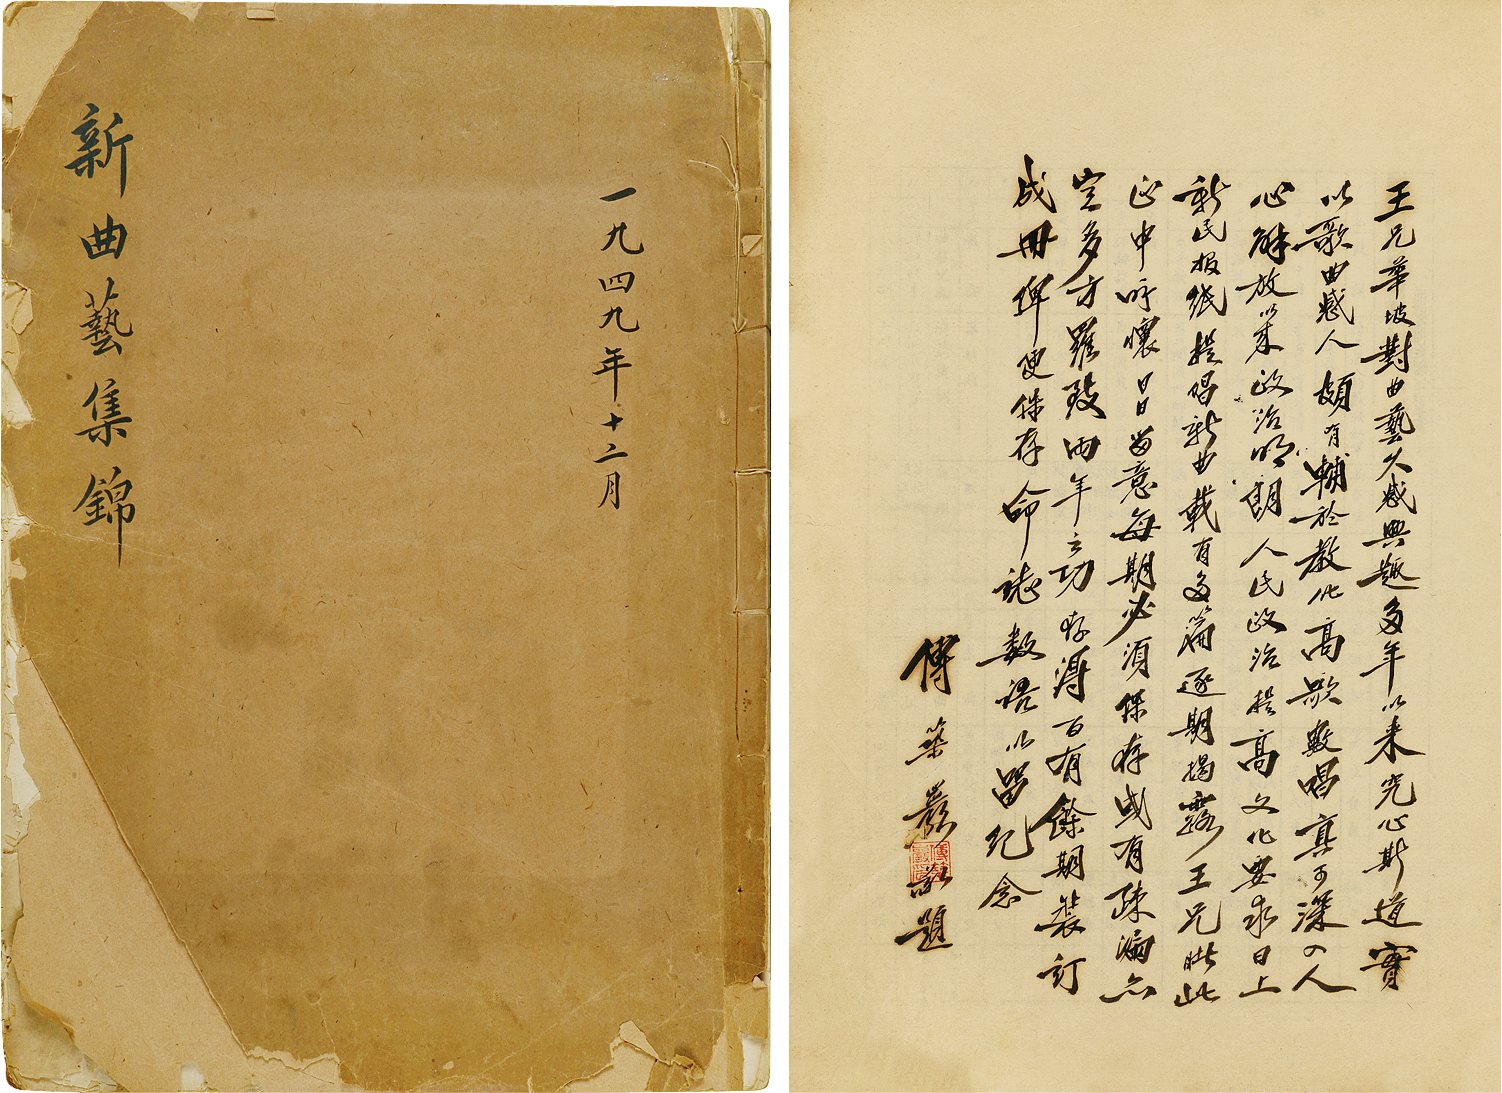 新曲藝集錦
一九四九年十二月
王兄華坡對曲藝久感興趣多年以来究心斯道實
以歌曲感人頗有輔於教化高歌數唱真可深入人
心解放以来政治明朗人民政治提高文化要求日上
新民报紙提唱新曲載有多篇逐期揭露王兄睹此
正中所懷日日留意每期必須保存或有疎漏亦
定多方羅致兩年之功存得百有餘期裝訂
成冊俾便保存命誌数語以留纪念
傅築巖敬題